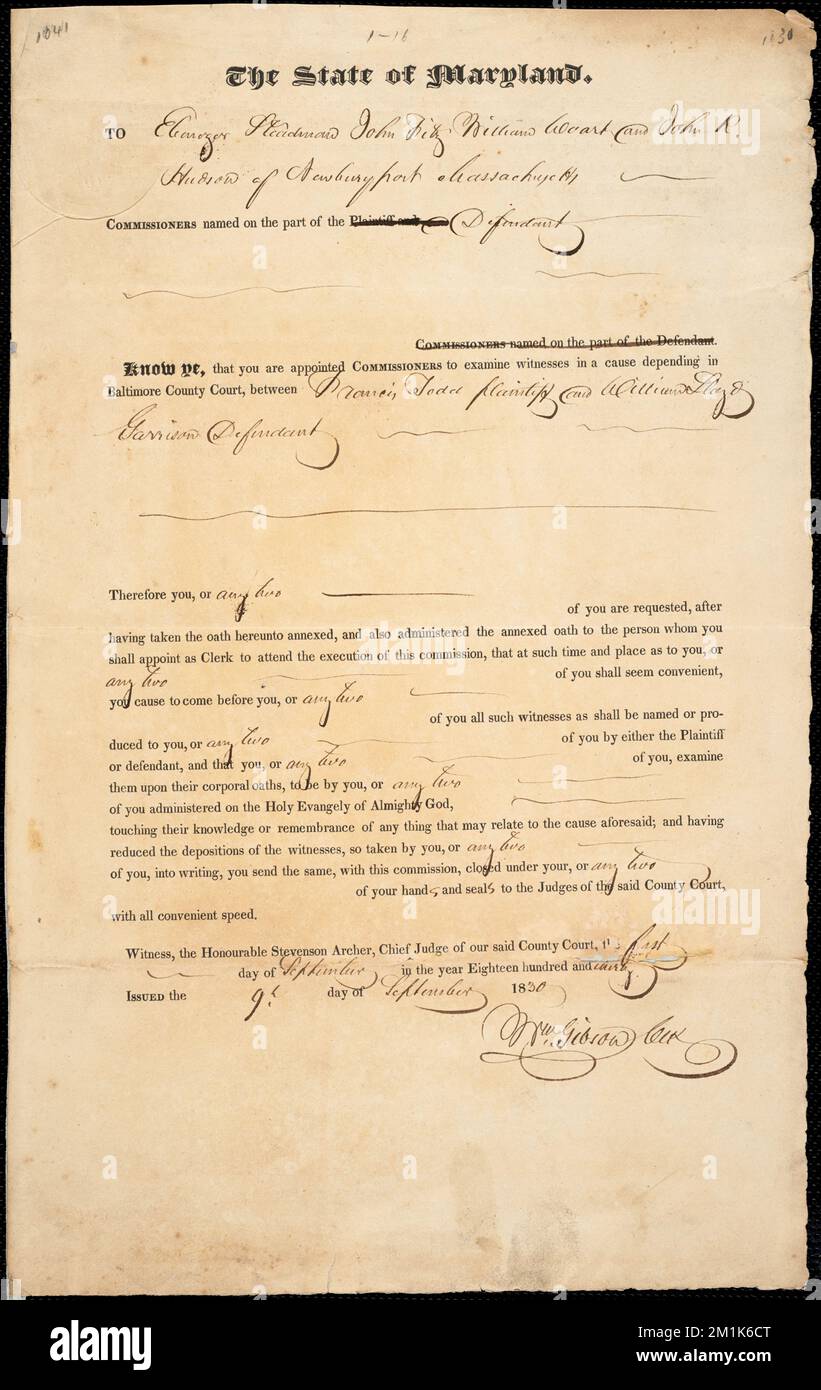 1041
1-16
1830
The State of Maryland.
TO Ebenezer Steadman John Fitz William Woart and John R.
Hudson of Newburyport Massachusetts
COMMISSIONERS named on the part of the Plaintiff and Defendant
COMMISSIONERS named on the part of the Defendant.
Know ye, that you are appointed COMMISSIONERS to examine witnesses in a cause depending in
Baltimore County Court, between Francis Todd plaintiff and William Lloyd
Garrison Defendant
Therefore you, or any two
of you are requested, after
having taken the oath hereunto annexed, and also administered the annexed oath to the person whom you
shall appoint as Clerk to attend the execution of this commission, that at such time and place as to you, or
any two of you shall seem convenient,
you cause to come before you, or any two
of you all such witnesses as shall be named or pro-
duced to you, or any two of you by either the Plaintiff
or defendant, and that you, or any two of you, examine
them upon their corporal oaths, to be by you, or any two
of you administered on the Holy Evangely of Almighty God,
touching their knowledge or remembrance of any thing that may relate to the cause aforesaid; and having
reduced the depositions of the witnesses, so taken by you, or any two
of you, into writing, you send the same, with this commission, closed under your, or any two
of your hands and seals to the Judges of the said County Court,
with all convenient speed.
Witness, the Honourable Stevenson Archer, Chief Judge of our said County Court, the first
day of September in the year Eighteen hundred and thirty.
ISSUED the 9th day of September 1830
Wm Gibson Clk
alamy
a
alamy
Image ID: 2M1K6CT
www.alamy.com